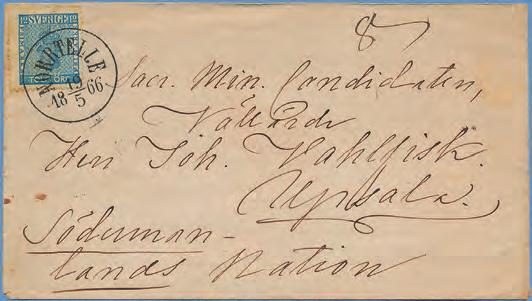 8
12 SVERIGE 12
TOLF ÖRE
NORRTELJE
19
18 66
5
Sacr. Min. Candidaten,
Vällärde
Herr Joh. Wahlfisk.
Upsala.
Söderman-
lands Nation